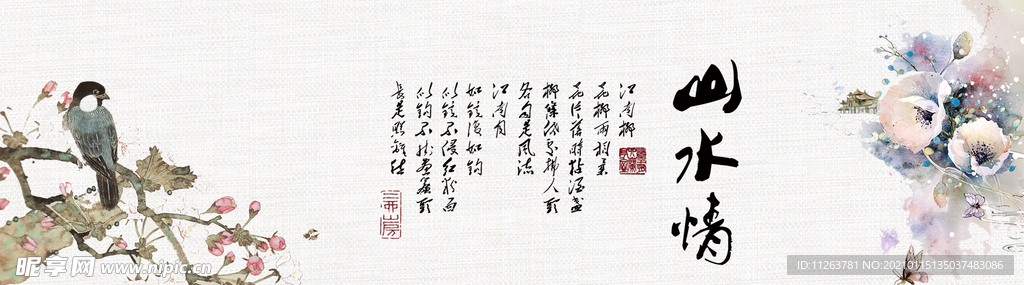 山水情
江南柳
花柳两相柔
花片落时黏酒盏
柳条低处拂人头
各自是风流
江南月
如镜复如钩
似镜不侵红粉面
似钩不挂画帘头
长是照离愁
昵享网 www.nipic.cn
ID:11263781 NO:20210115135037483086